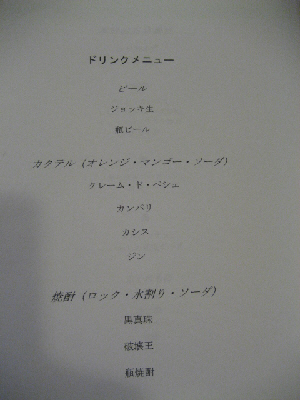 ドリンクメニュー
ビール
ジョッキ生
瓶ビール
カクテル（オレンジ・マンゴー・ソーダ）
クレーム・ド・ペシェ
カンパリ
カシス
ジン
焼酎（ロック・水割り・ソーダ）
黒真珠
破壊王
瓶焼酎